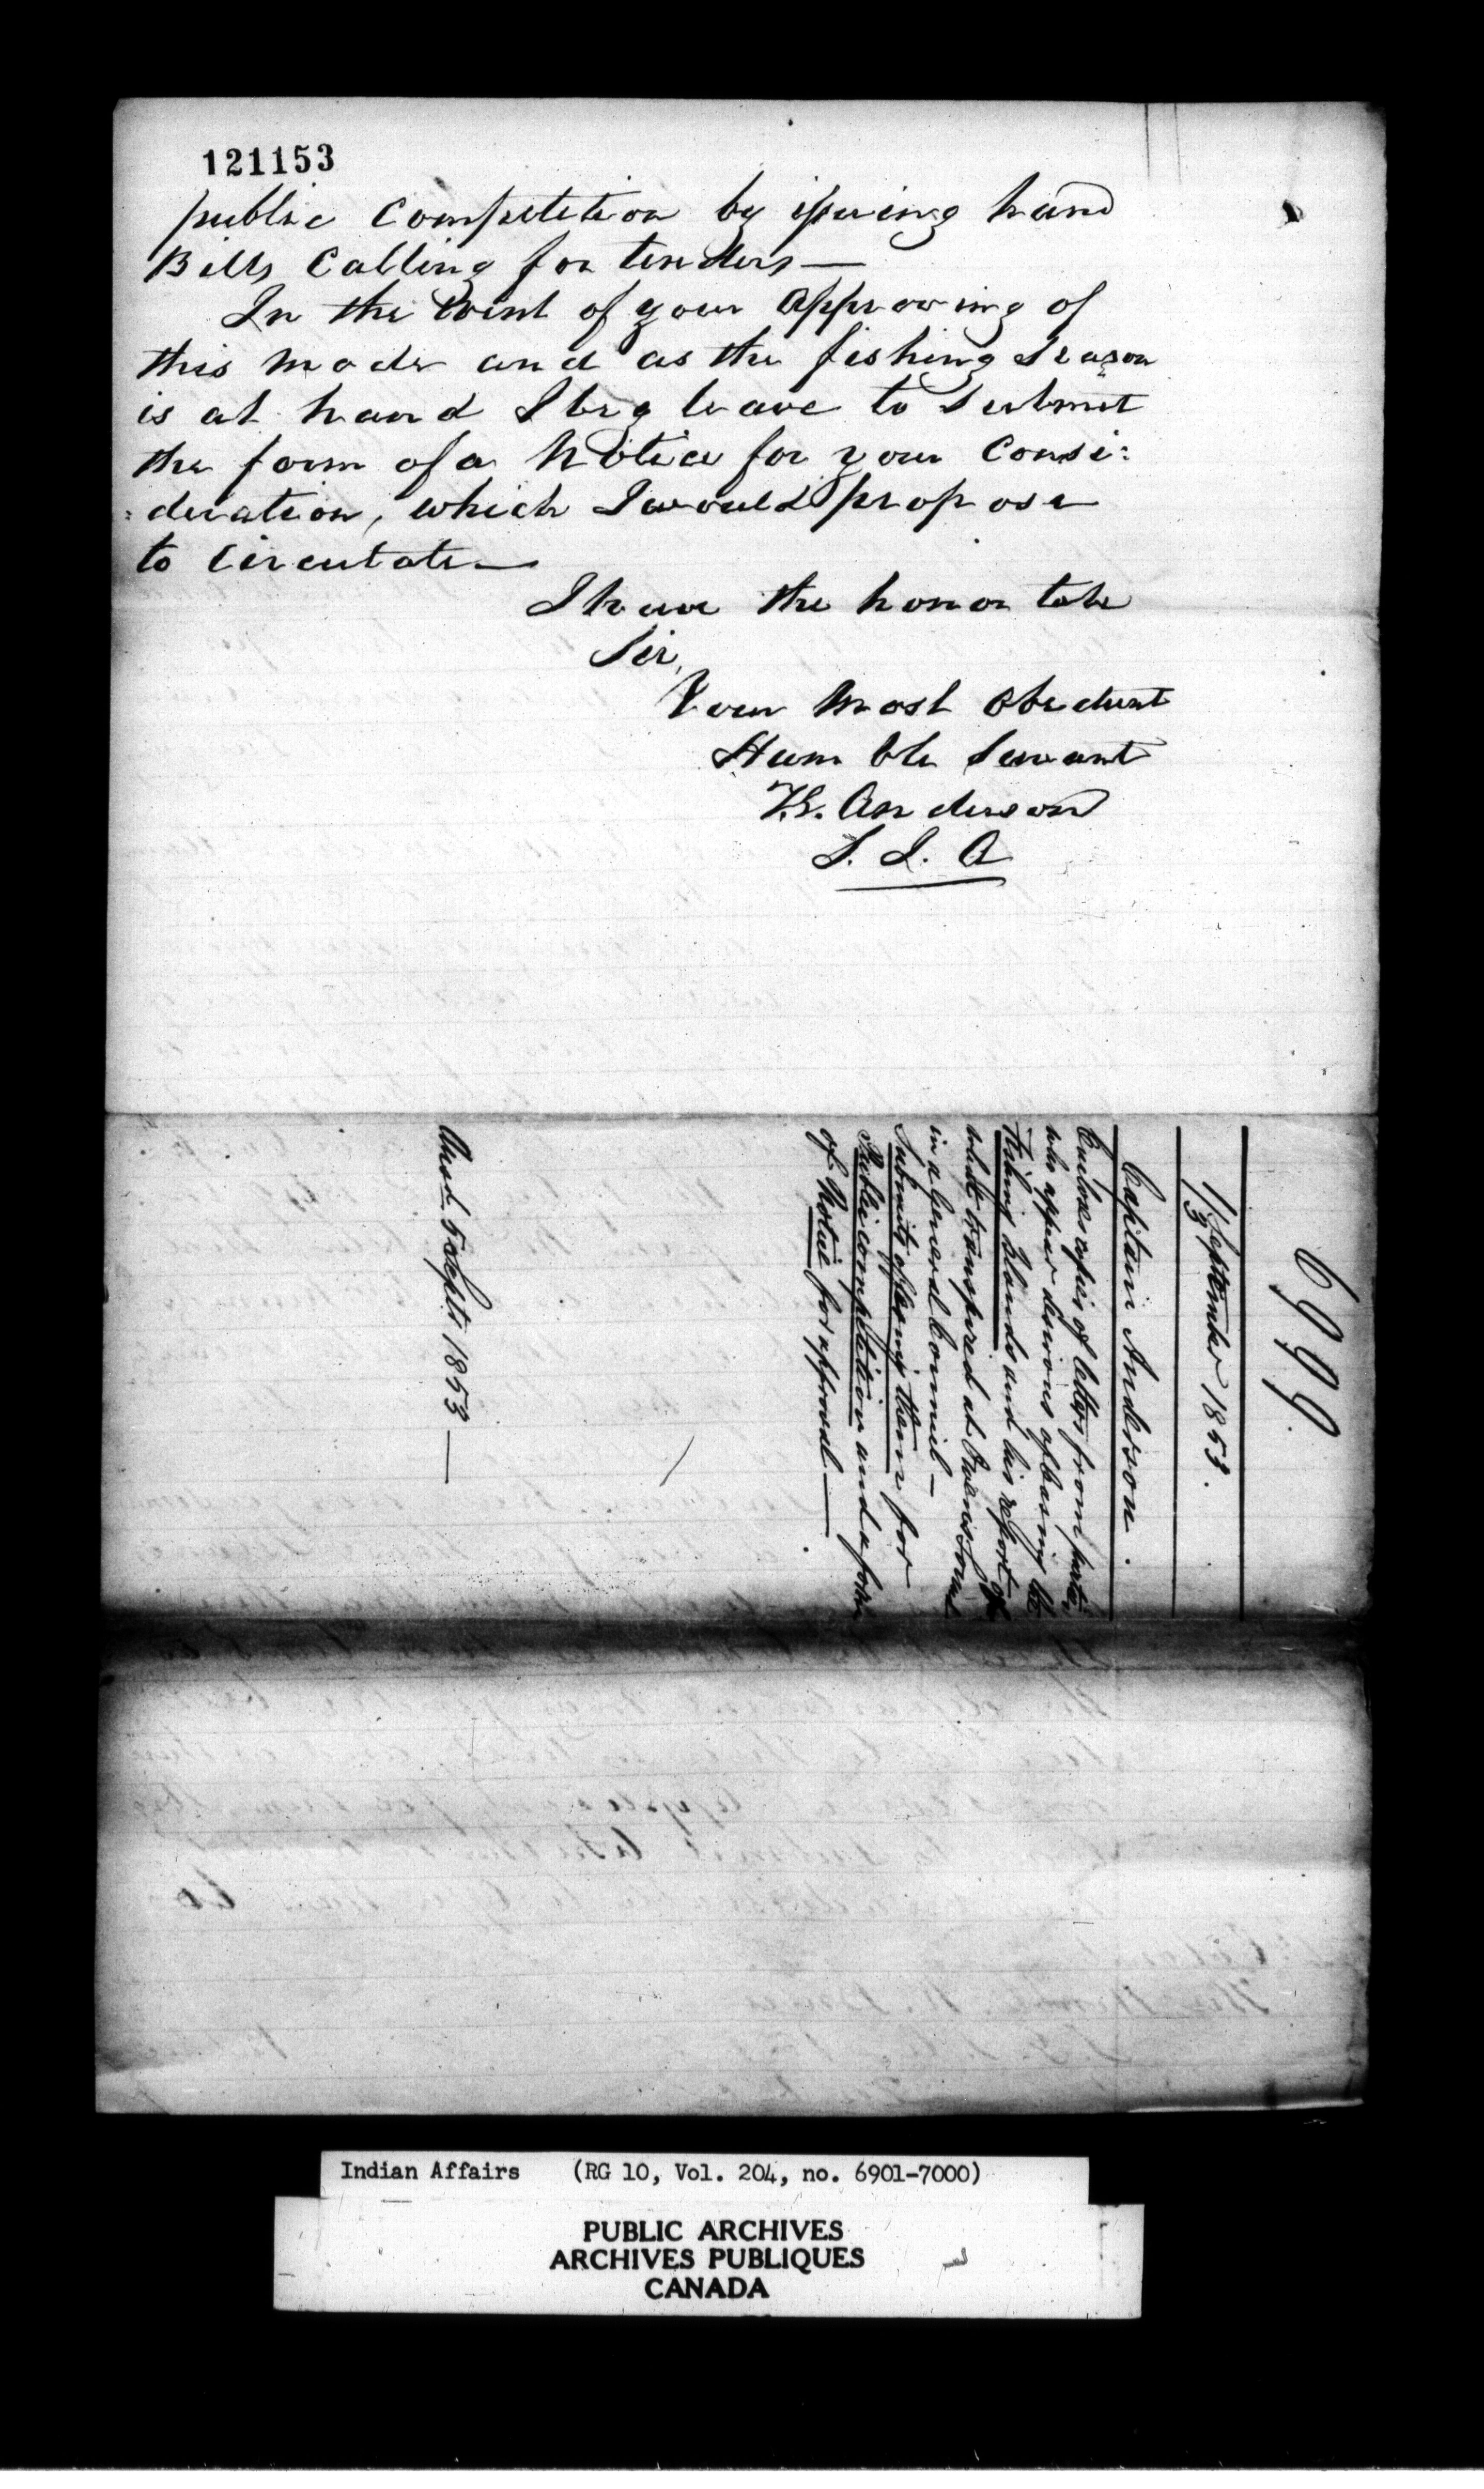 121153
public Competition by issuing hand
Bills Calling for tenders —
In the Event of your Approving of
this Mode and as the fishing Season
is at hand I beg leave to Submit
the form of a Notice for your Consi:
:deration, which I would propose
to Circulate —
I have the honor to be
Sir,
Your Most Obedient
Humble Servant
T.G. Anderson
S. I. A
6999.
1/3 September 1853.
Captain Anderson.
Encloses copies of letters from parties
who appear desirous of leasing the
Fishing Islands and his report of
what transpired at Owens Sound
in a General Council —
Submits offering them for
Public competition and a form
of Notice for approval —
Ansd. 5 Septr. 1853 —
Indian Affairs (RG 10, Vol. 204, no. 6901-7000)
PUBLIC ARCHIVES
ARCHIVES PUBLIQUES
CANADA